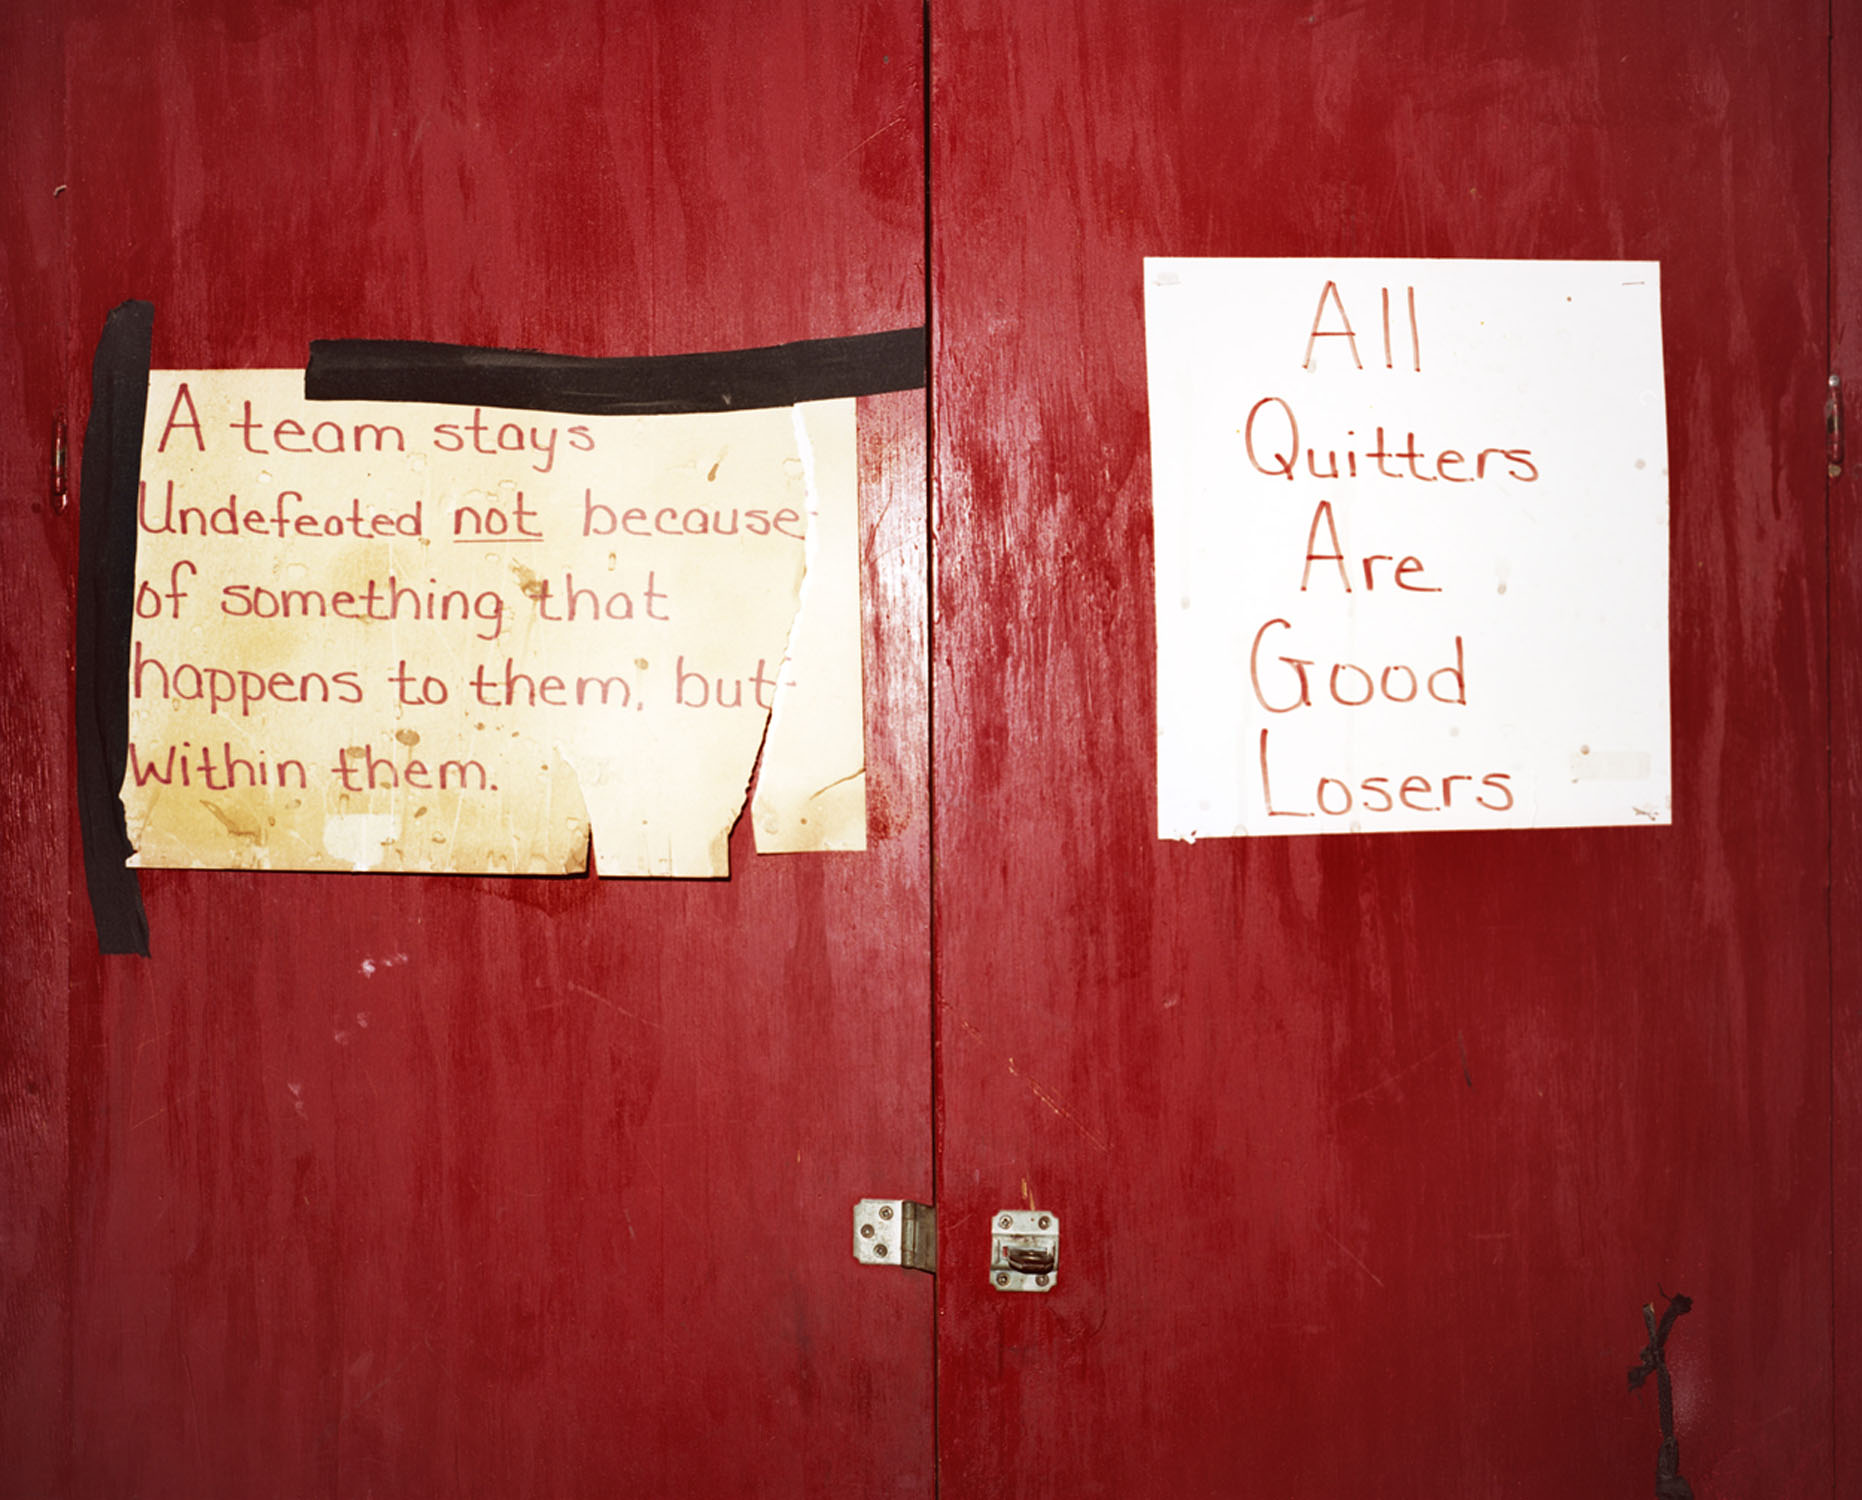 A team stays
Undefeated not because
of something that
happens to them, but
Within them.
All
Quitters
Are
Good
Losers